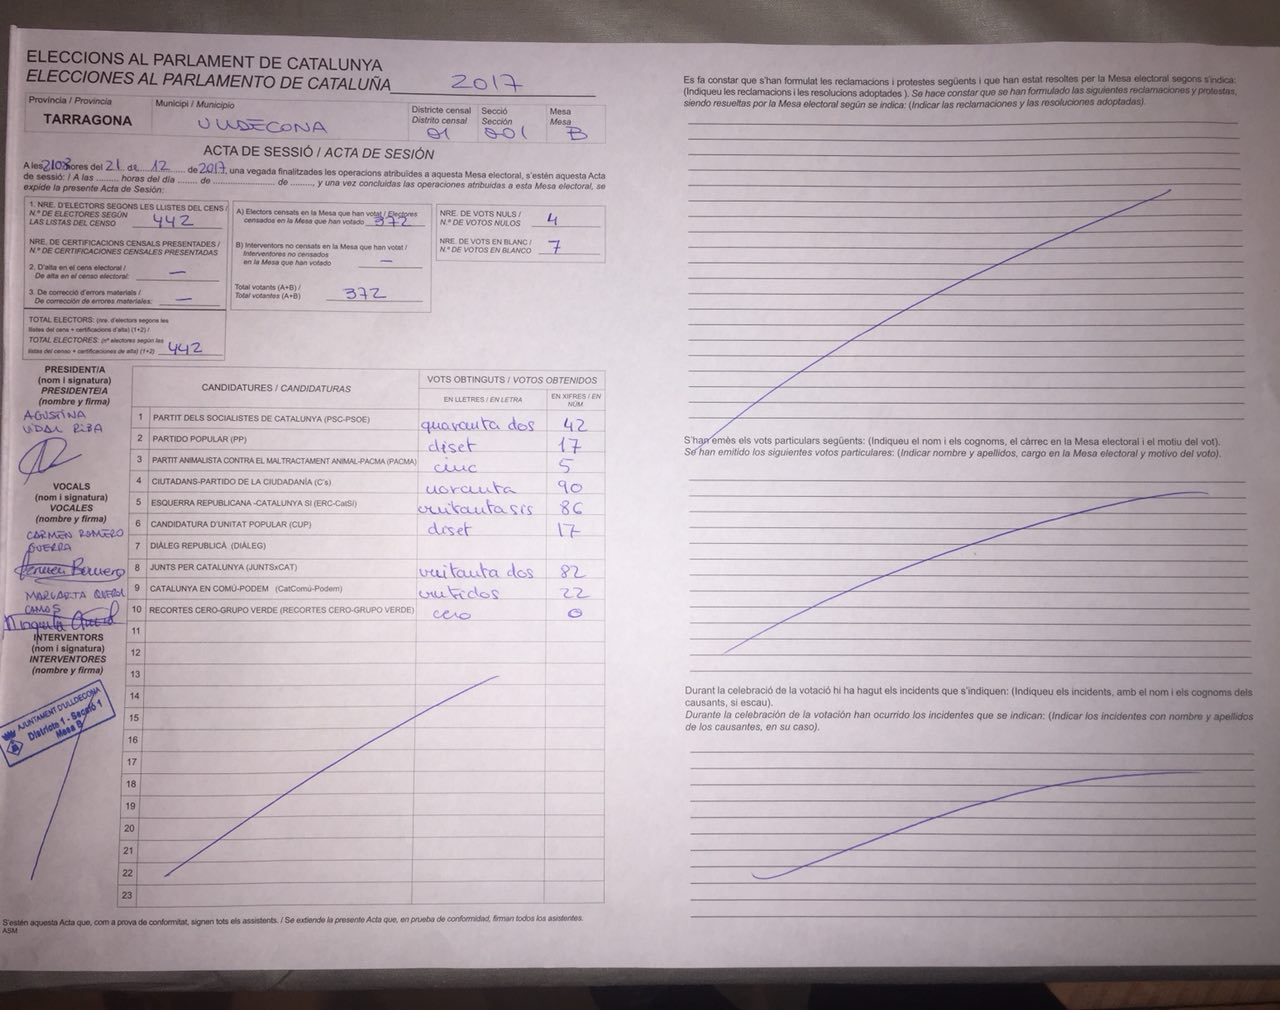 ELECCIONS AL PARLAMENT DE CATALUNYA
ELECCIONES AL PARLAMENTO DE CATALUÑA 2017
Província / Provincia
TARRAGONA
Municipi / Municipio
ULLDECONA
Districte censal
Distrito censal
01
Secció
Sección
001
Mesa
Mesa
B
ACTA DE SESSIÓ / ACTA DE SESIÓN
A les 2108 hores del 21 de 12 de 2017, una vegada finalitzades les operacions atribuïdes a aquesta Mesa electoral, s'estén aquesta Acta
de sessió: / A las ......... horas del día ....... de ....................... de ........, y una vez concluidas las operaciones atribuidas a esta Mesa electoral, se
expide la presente Acta de Sesión:
1. NRE. D'ELECTORS SEGONS LES LLISTES DEL CENS /
N.º DE ELECTORES SEGÚN
LAS LISTAS DEL CENSO 442
NRE. DE CERTIFICACIONS CENSALS PRESENTADES /
N.º DE CERTIFICACIONES CENSALES PRESENTADAS
2. D'alta en el cens electoral /
De alta en el censo electoral: —
3. De correcció d'errors materials /
De corrección de errores materiales: —
TOTAL ELECTORS: (nre. d'electors segons les
llistes del cens + certificacions d'alta) (1+2) /
TOTAL ELECTORES: (nº electores según las
listas del censo + certificaciones de alta) (1+2) 442
A) Electors censats en la Mesa que han votat / Electores
censados en la Mesa que han votado 372
B) Interventors no censats en la Mesa que han votat /
Interventores no censados
en la Mesa que han votado —
Total votants (A+B) /
Total votantes (A+B) 372
NRE. DE VOTS NULS /
N.º DE VOTOS NULOS 4
NRE. DE VOTS EN BLANC /
N.º DE VOTOS EN BLANCO 7
PRESIDENT/A
(nom i signatura)
PRESIDENTE/A
(nombre y firma)
AGUSTINA
VIDAL RIBA
VOCALS
(nom i signatura)
VOCALES
(nombre y firma)
CARMEN ROMERO
GUERRA
Carmen Romero
MARGARTA QUEROL
CAMOS
INTERVENTORS
(nom i signatura)
INTERVENTORES
(nombre y firma)
AJUNTAMENT D'ULLDECONA
Districte 1 - Secció 1
Mesa B
CANDIDATURES / CANDIDATURAS
VOTS OBTINGUTS / VOTOS OBTENIDOS
EN LLETRES / EN LETRA
EN XIFRES / EN NÚM
1 PARTIT DELS SOCIALISTES DE CATALUNYA (PSC-PSOE) quaranta dos 42
2 PARTIDO POPULAR (PP) diset 17
3 PARTIT ANIMALISTA CONTRA EL MALTRACTAMENT ANIMAL-PACMA (PACMA) cinc 5
4 CIUTADANS-PARTIDO DE LA CIUDADANÍA (C's) noranta 90
5 ESQUERRA REPUBLICANA -CATALUNYA SÍ (ERC-CatSí) vuitantasis 86
6 CANDIDATURA D'UNITAT POPULAR (CUP) diset 17
7 DIÀLEG REPUBLICÀ (DIÀLEG)
8 JUNTS PER CATALUNYA (JUNTSxCAT) vuitanta dos 82
9 CATALUNYA EN COMÚ-PODEM (CatComú-Podem) vintidos 22
10 RECORTES CERO-GRUPO VERDE (RECORTES CERO-GRUPO VERDE) cero 0
11
12
13
14
15
16
17
18
19
20
21
22
23
S'estén aquesta Acta que, com a prova de conformitat, signen tots els assistents. / Se extiende la presente Acta que, en prueba de conformidad, firman todos los asistentes.
ASM
Es fa constar que s'han formulat les reclamacions i protestes següents i que han estat resoltes per la Mesa electoral segons s'indica:
(Indiqueu les reclamacions i les resolucions adoptades ). Se hace constar que se han formulado las siguientes reclamaciones y protestas,
siendo resueltas por la Mesa electoral según se indica: (Indicar las reclamaciones y las resoluciones adoptadas).
S'han emès els vots particulars següents: (Indiqueu el nom i els cognoms, el càrrec en la Mesa electoral i el motiu del vot).
Se han emitido los siguientes votos particulares: (Indicar nombre y apellidos, cargo en la Mesa electoral y motivo del voto).
Durant la celebració de la votació hi ha hagut els incidents que s'indiquen: (Indiqueu els incidents, amb el nom i els cognoms dels
causants, si escau).
Durante la celebración de la votación han ocurrido los incidentes que se indican: (Indicar los incidentes con nombre y apellidos
de los causantes, en su caso).